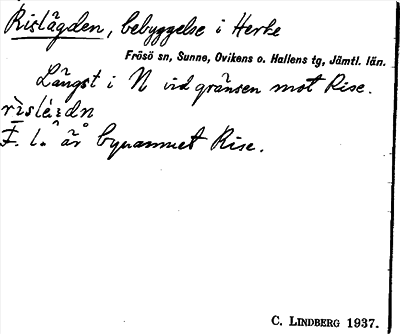 Rislägden, bebyggelse i Herke
Frösö sn, Sunne, Ovikens o. Hallens tg, Jämtl. län.
Längst i N vid gränsen mot Rise.
F. l. är bynamnet Rise.
C. LINDBERG 1937.